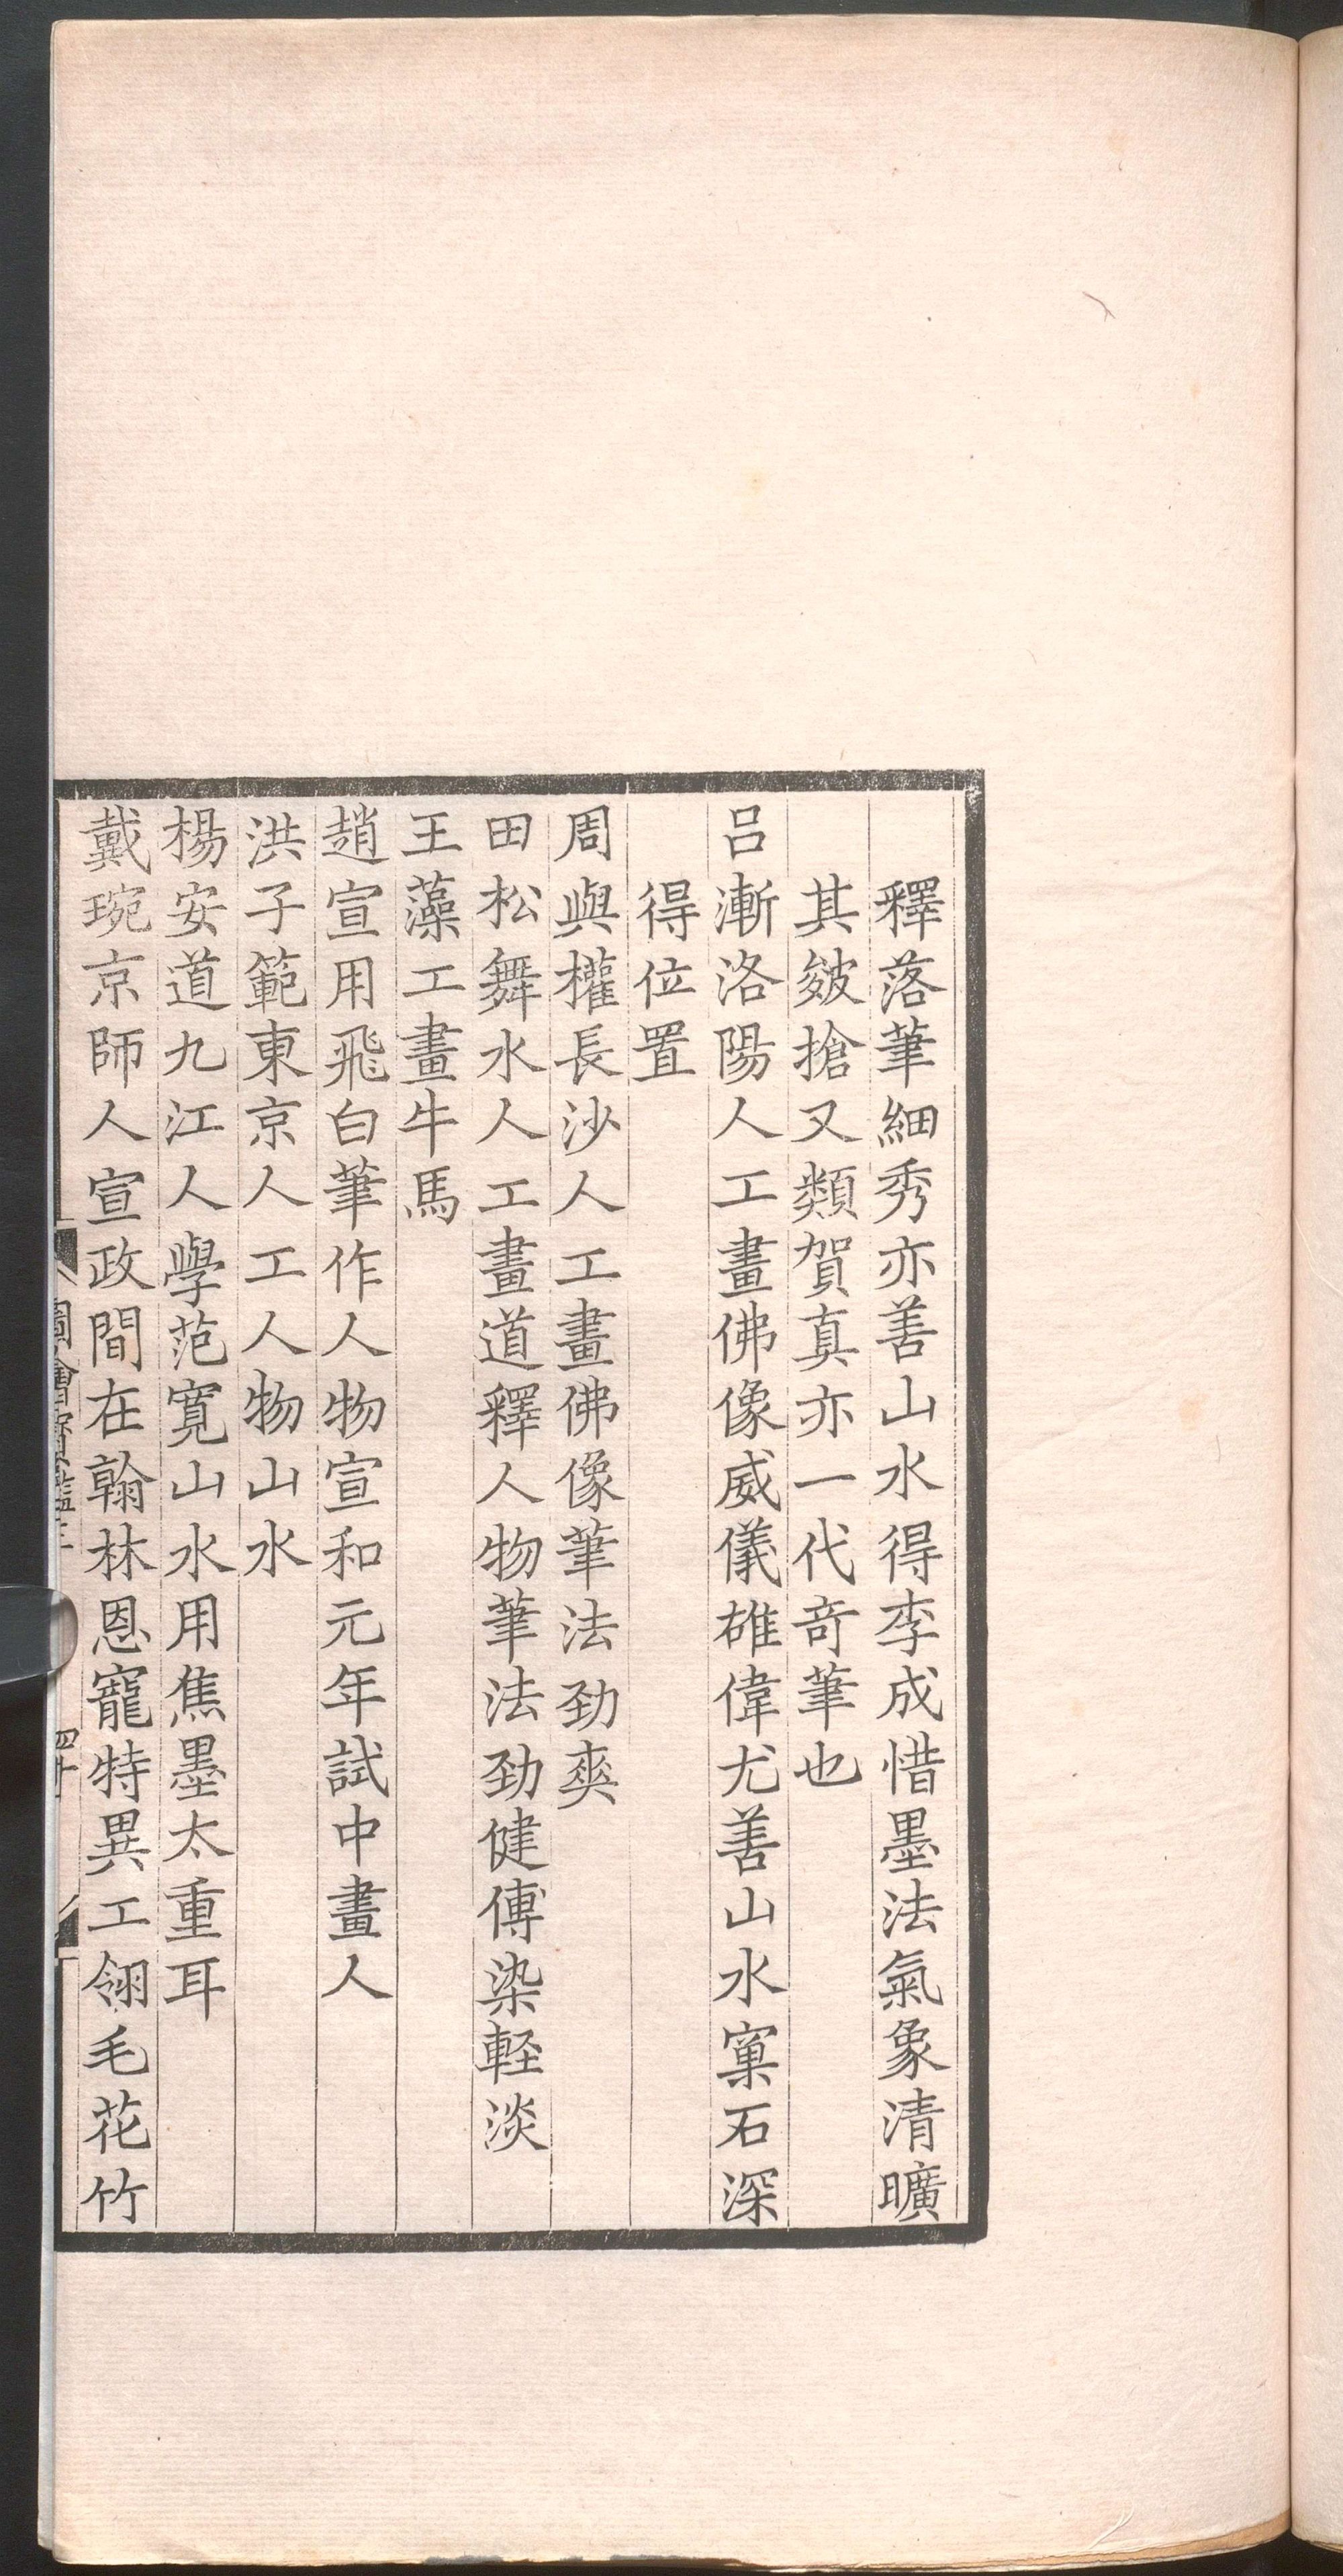 釋落筆細秀亦善山水得李成惜墨法氣象清曠
其皴搶又類賀真亦一代竒筆也
吕漸洛陽人工畫佛像威儀雄偉尤善山水窠石深
得位置
周與權長沙人工畫佛像筆法勁爽
田松舞水人工畫道釋人物筆法勁健傅染輕淡
王藻工畫牛馬
趙宣用飛白筆作人物宣和元年試中畫人
洪子範東京人工人物山水
楊安道九江人學范寬山水用焦墨太重耳
戴琬京師人宣政間在翰林恩寵特異工翎毛花竹
圖繪寶鑑三